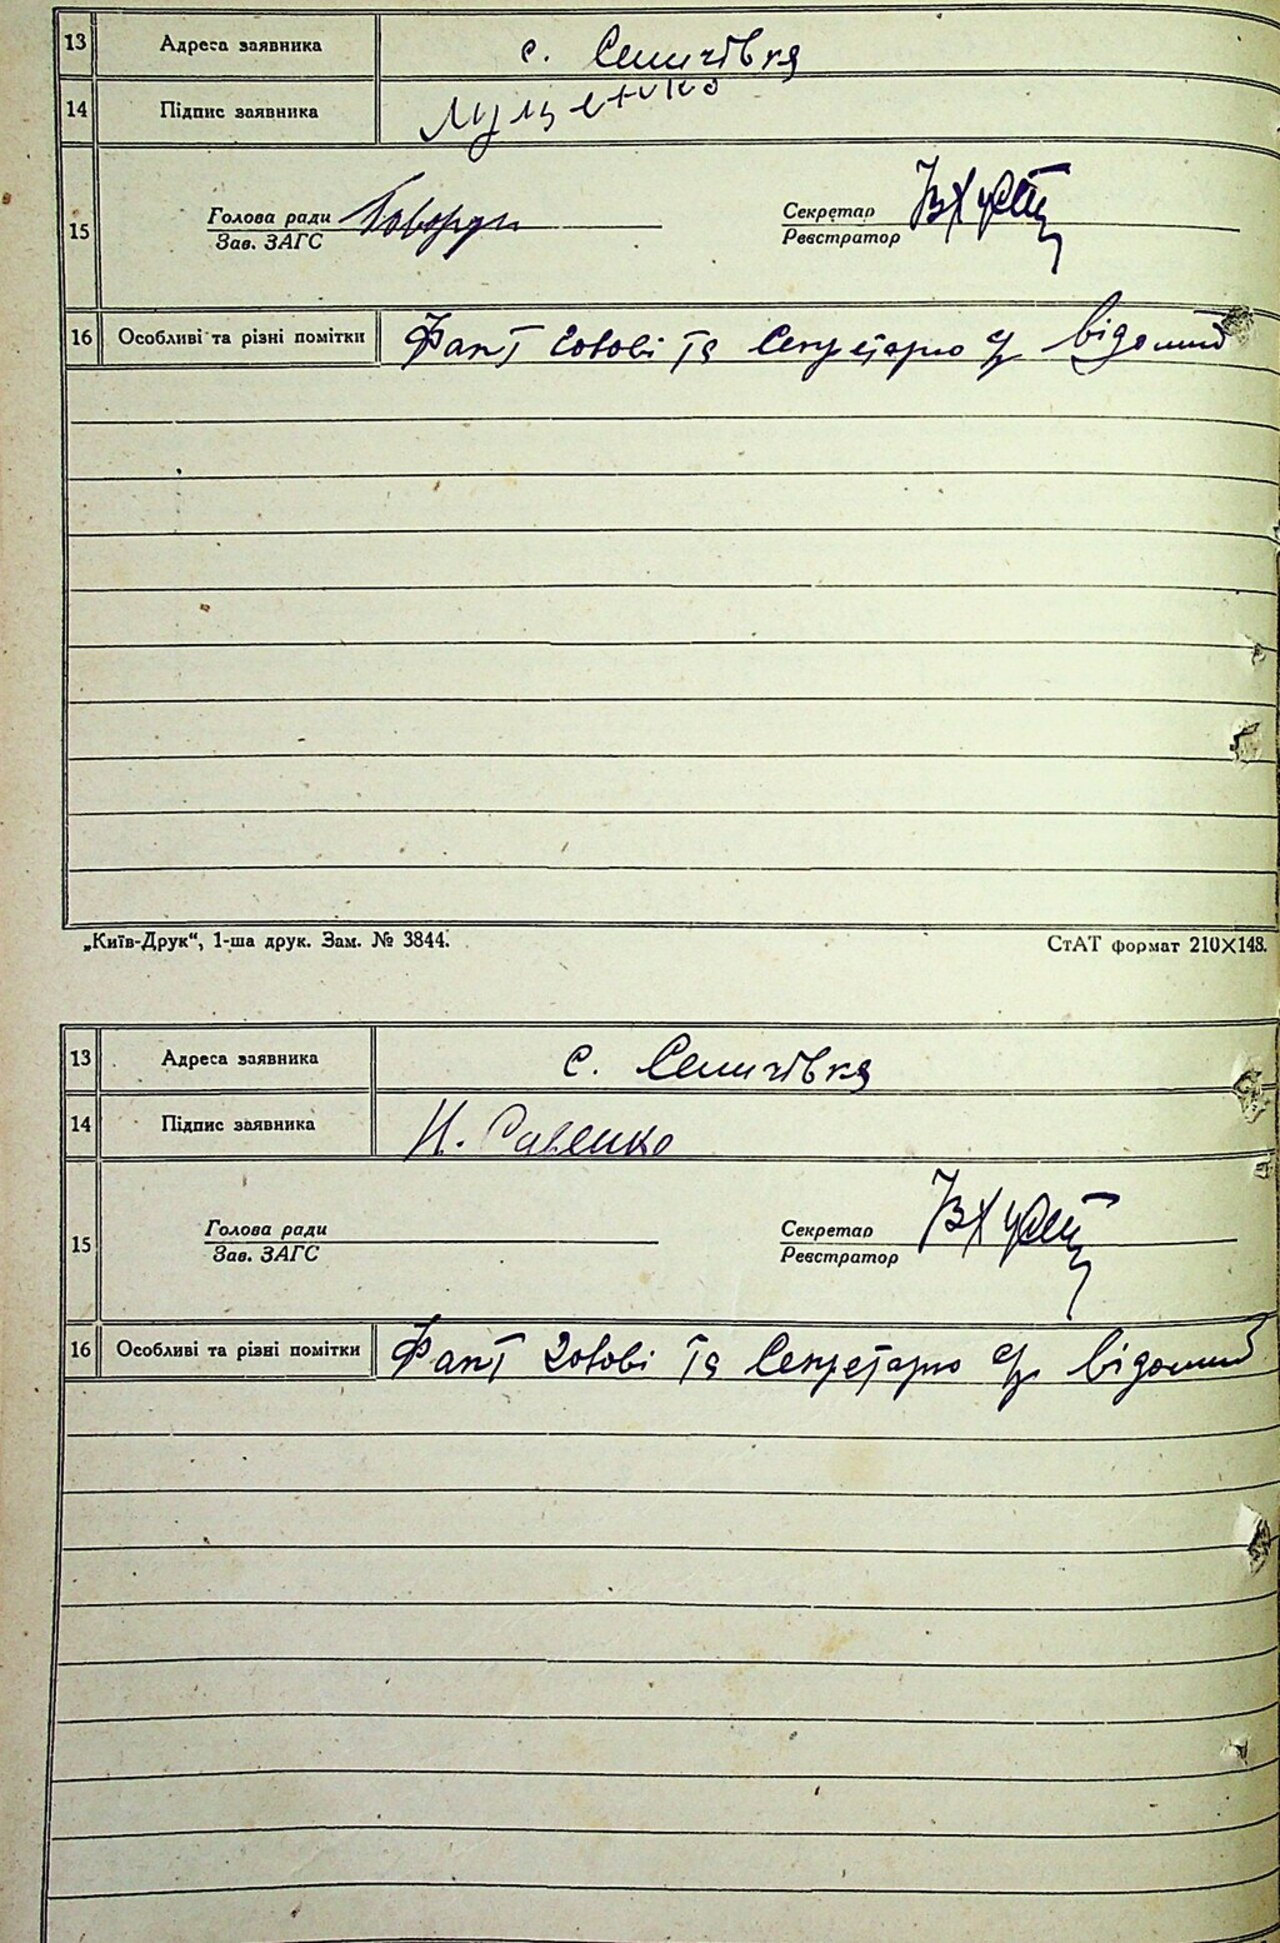 13 Адреса заявника с. Семичівка
14 Підпис заявника
15 Голова ради Секретар
Зав. ЗАГС Реєстратор
16 Особливі та різні помітки Факт голові та секретарю с/р відомий
„Київ-Друк“, 1-ша друк. Зам. № 3844. СтАТ формат 210×148.
13 Адреса заявника с. Семичівка
14 Підпис заявника Н. Савенко
15 Голова ради Секретар
Зав. ЗАГС Реєстратор
16 Особливі та різні помітки Факт голові та секретарю с/р відомий